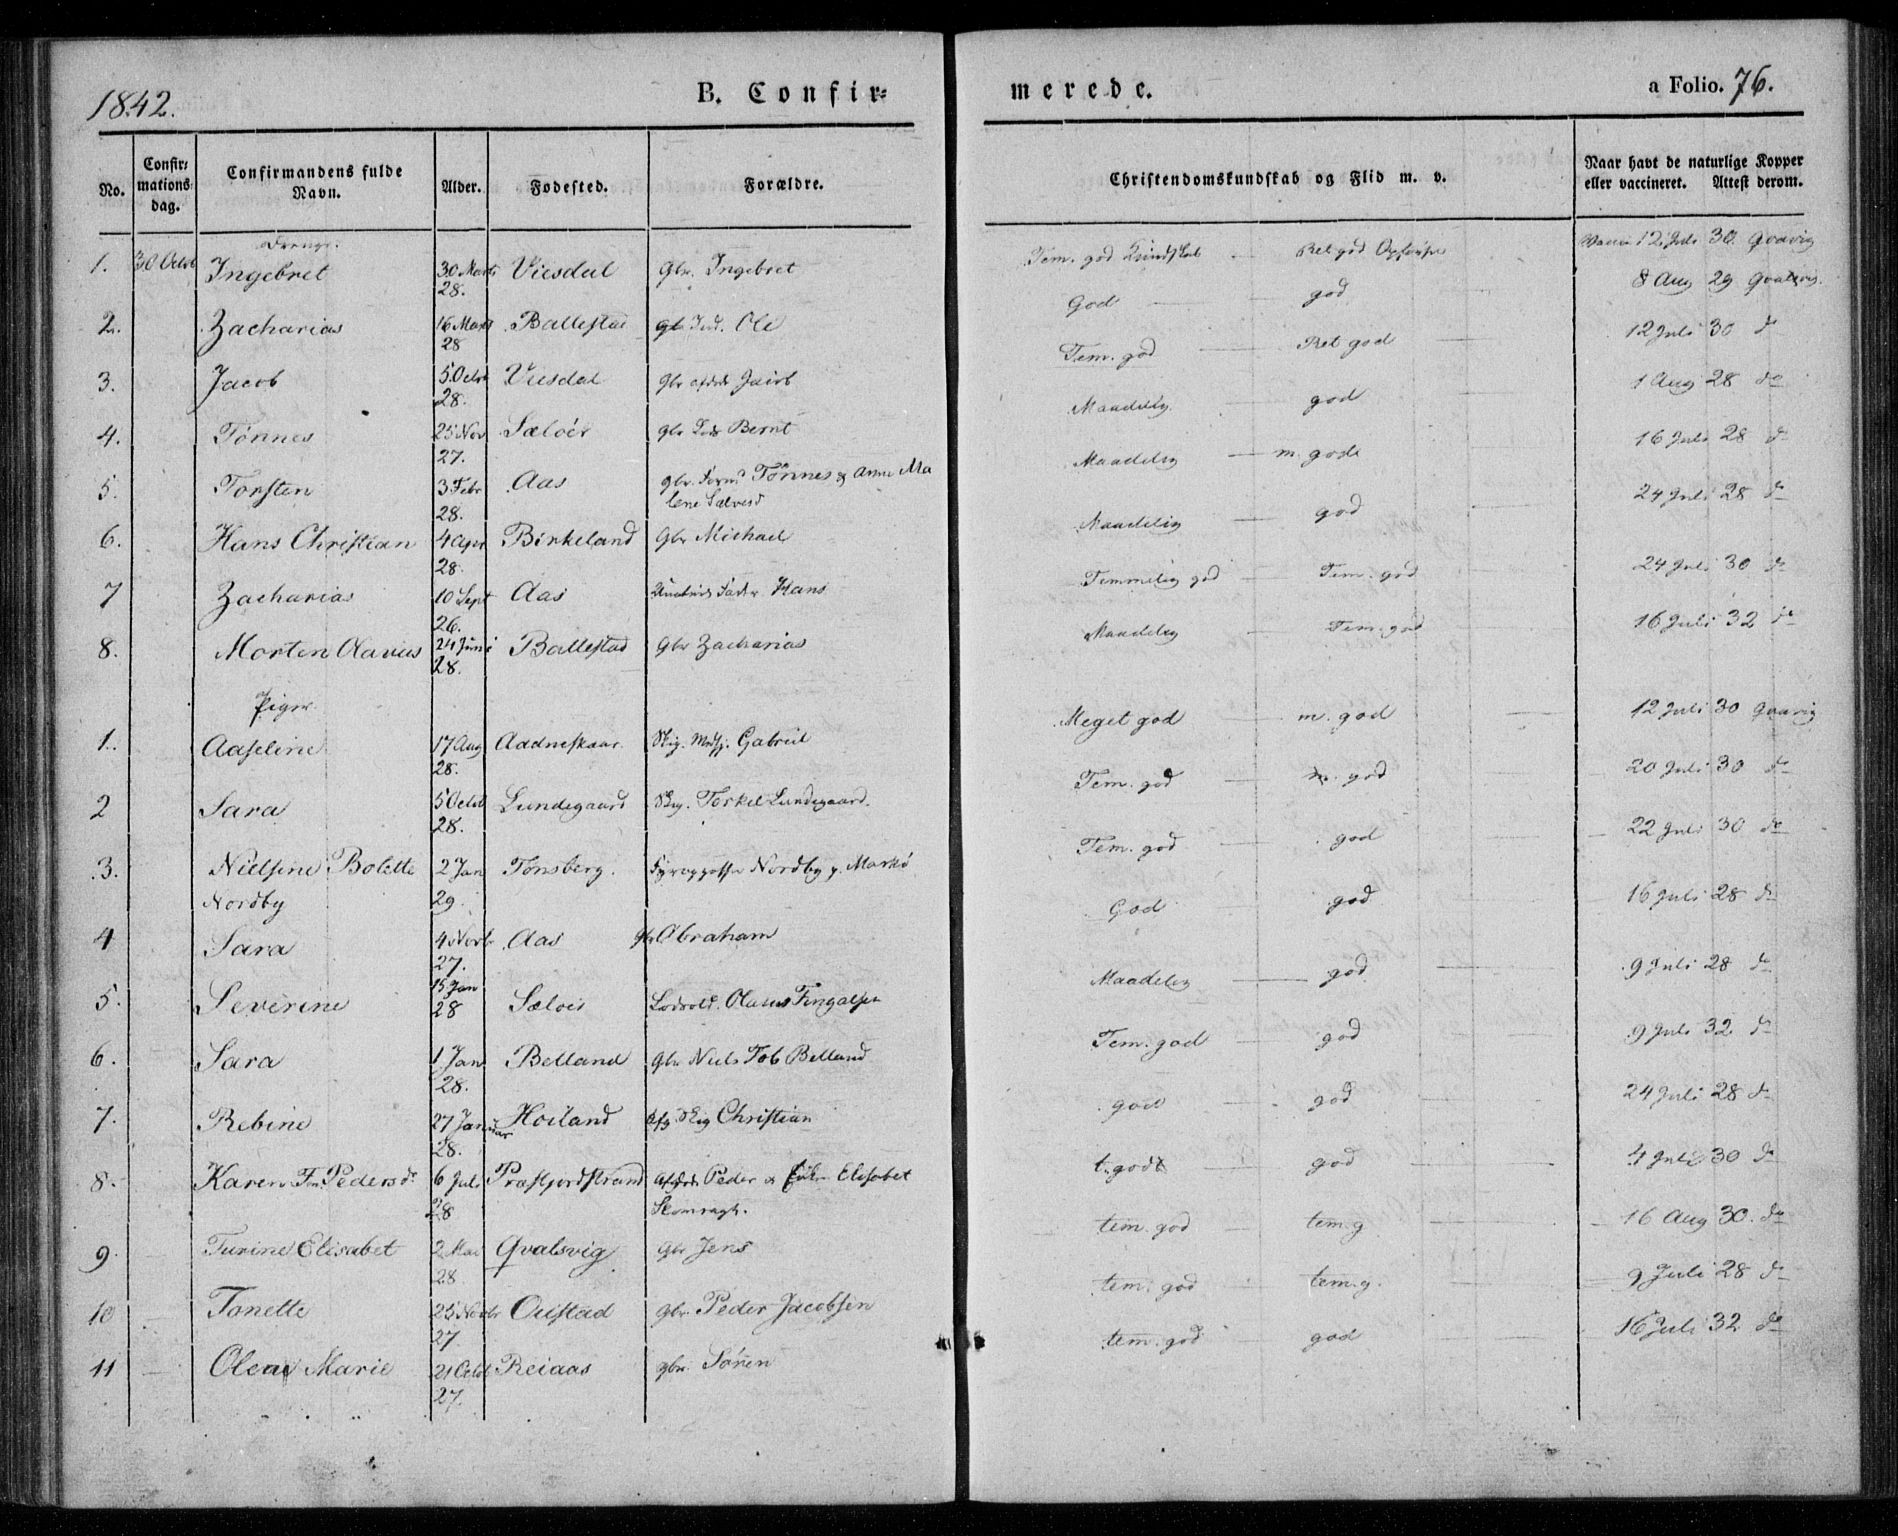 1842.
B. Confir=
merede.
a Folio. 76.
No.
Confir=
mations
dag.
Confirmandens fulde
Navn.
Alder.
Fødested.
Forældre.
Christendomskundskab og Flid m. v.
Naar havt de naturlige Kopper
eller vaccineret. Attest derom.
Drenge.
1. 30 Octob Ingebret 30 Marts 28. Viesdal Gbr. Ingebret Tem. god Kundskab Ret god Opførsel 12 Juli 30. Qvavig
2. Zacharias 16 Marts 28 Ballestad Ole God god 8 Aug 29
3. Jacob 5 Octob 28. Viesdal Gbr Jacob Tem. god Ret god 12 Juli 30 do
4. Tønnes 25 Nov 27. Sæløer gbr Bernt Maadelig god 1 Aug 28 do
5. Torsten 3 Febr 28. Aas gbr. Tønnes & Anne Ma
lene Salvesd Maadelig m. gode 16 Juli 28 do
6. Hans Christian 4 Apr 28. Birkeland Gbr Michael Maadelig god 24 Juli 28 do
7 Zacharias 10 Sept 26. Aas Fader Hans Temmelig god Tem. god 24 Juli 30 do
8. Morten Olavus 24 Juni 28. Ballestad Gbr Zacharias Maadelig Tem. god 16 Juli 32 do
Piger.
1. Aaseline 17 Aug 28. Aadneskaar Gabriel Meget god m. god 12 Juli 30 Qvavig
2 Sara 5 Octob 28. Lundegaard Torkel Lundegaard. Tem. god m. god 20 Juli 30 do
3. Nielsine Bolette
Nordby 2 Jan 29. Tønsberg. Nordby p. Markø Tem. god god 22 Juli 30 do
4 Sara 4 Novbr 27. Aas gbr Abraham God god 16 Juli 28 do
5. Severine 15 Jan 28 Sæloer Olaus Fingalsen Maadelig god 9 Juli 28 do
6. Sara 1 Jan 28. Belland Gbr Niels Tob Belland Tem. god god 9 Juli 32 do
7. Rebine 27 Januar 28. Hoiland Christian god god 24 Juli 28 do
8. Karen Pedersd. 6 Juli 28 Præstjordstrand Peder & Elisabet t. godt god 4 Juli 30 do
9. Turine Elisabet 2 Mai 28. Qvalsvig Gbr Jens tem. god tem. g 16 Aug 30. do
10 Tonette 25 Novbr 27 Ouestad gbr. Peder Jacobsen tem. god tem. g. 9 Juli 28 do
11 Olene Marie 21 Octob 27. Reiaas gbr. Sören tem. god god 16 Juli 32 do